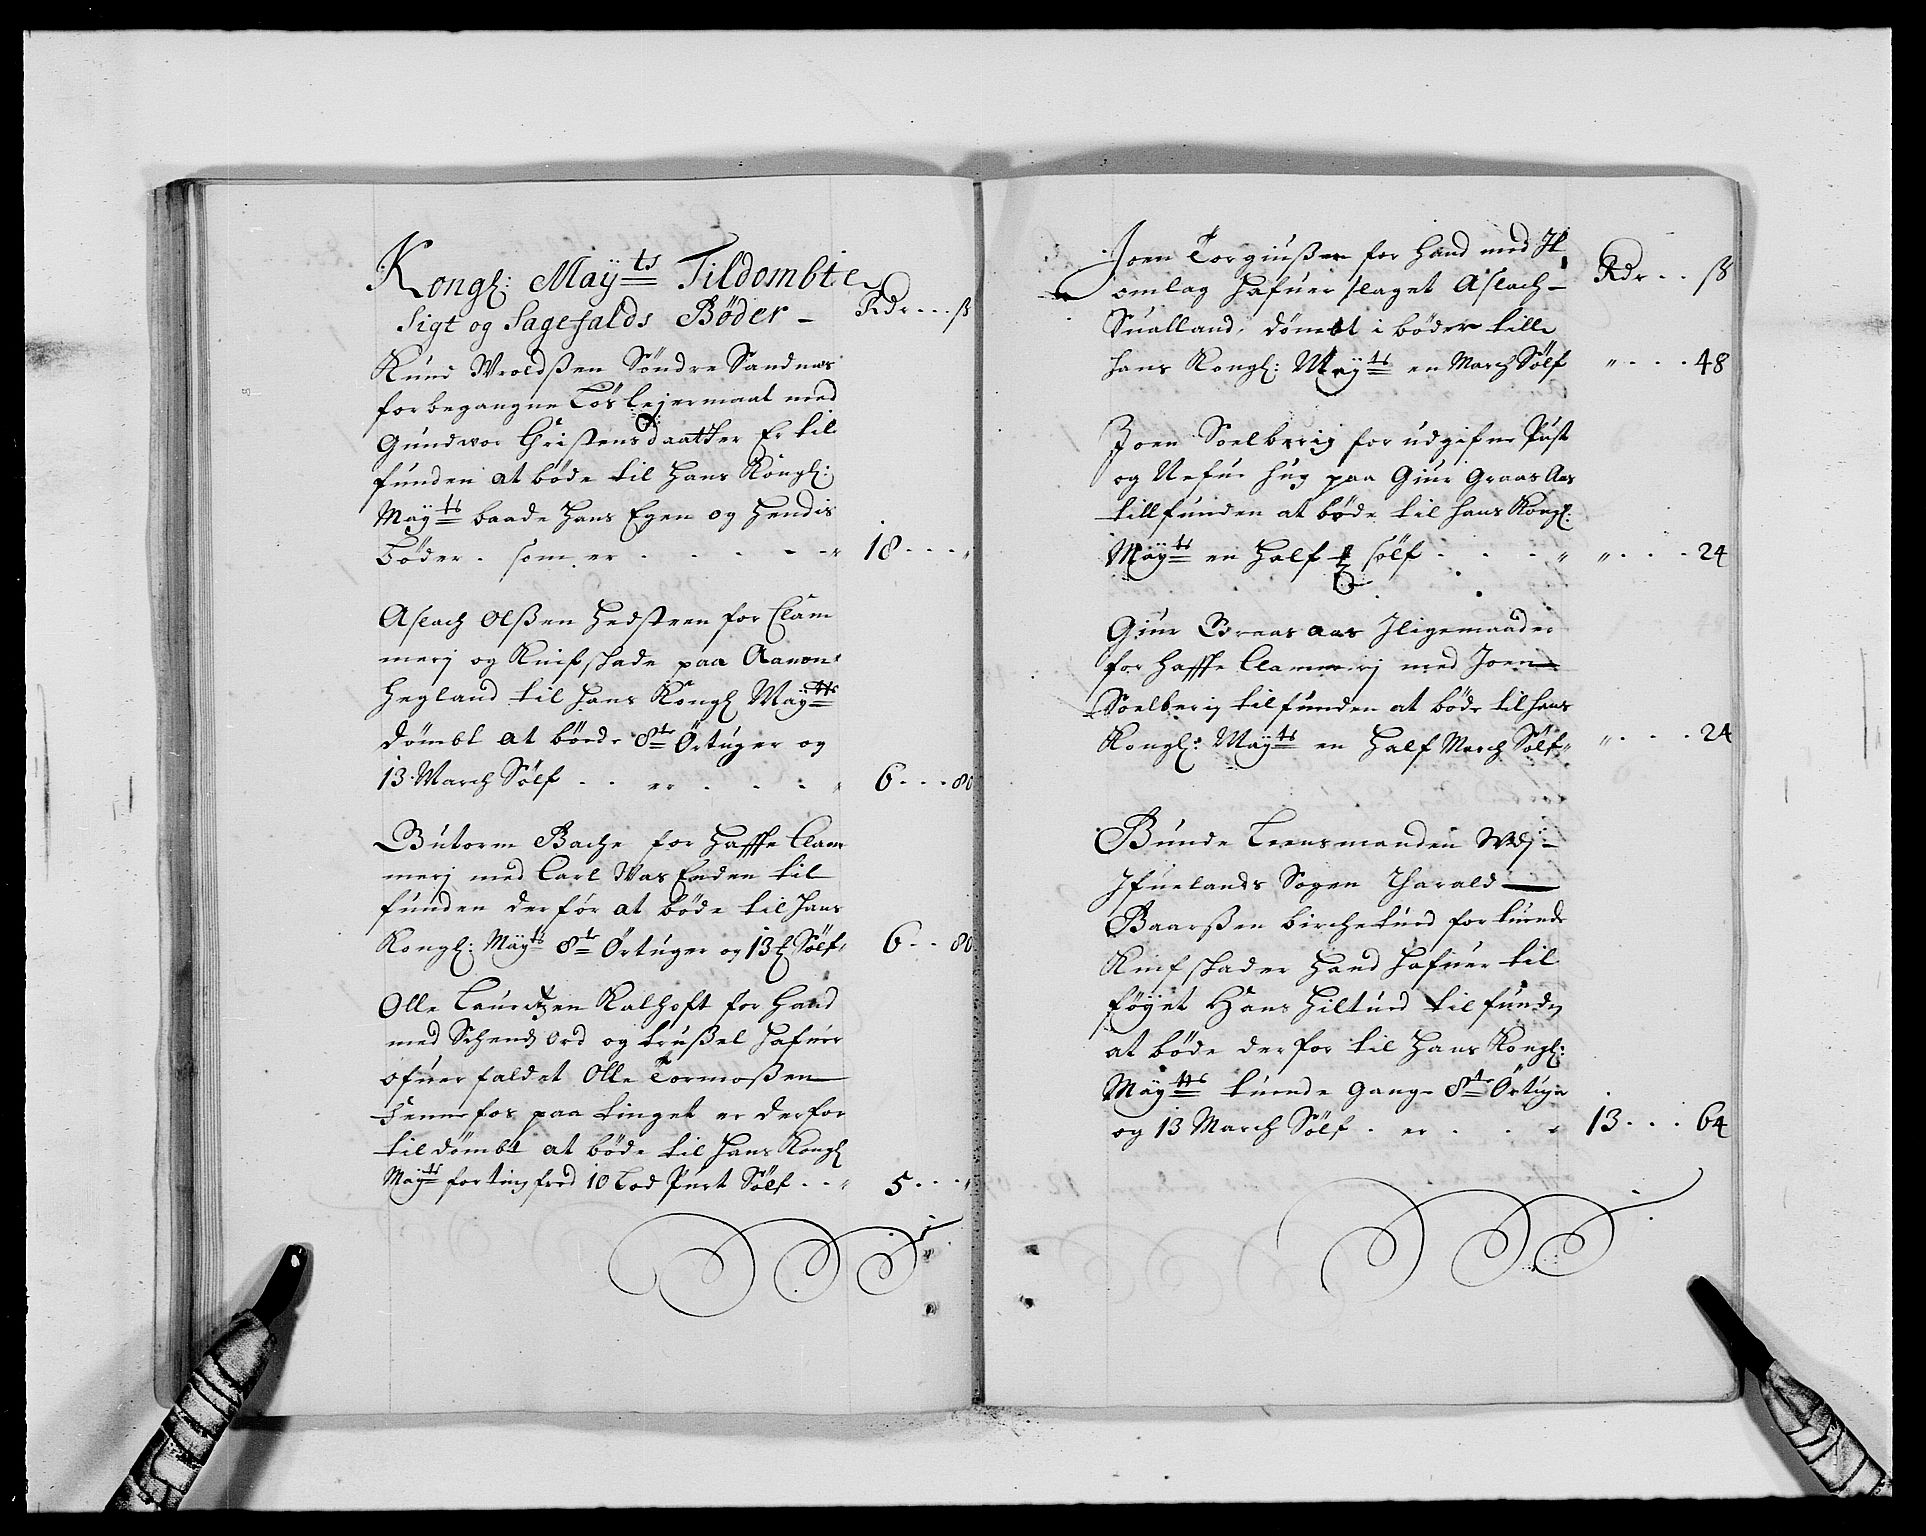 Kongl: Maÿts Tildombte
Sigt og Sagefalds Bøder - Rdr - - - ß
Knud Wroldßen Söndre Sandnæs
for begangne Löslejermaal med
Gundwor Christensdaatter Er til
funden at böde til Hans Kongl:
Maÿts baade Hans Egen og Hendis
Böder. som er - - - - - 18 - - - "
Aslach Olßen Hedsteen for Clam
merj og Knifskade paa Aanon
Hegland til Hans Kongl Maÿtts
dömbt at böede 8te Örtuger og
13 March Sölf - - er - - - 6 - - - 80
Gutorm Bache for Haffte Clam
merj med Carl Was Enden til
funden derfor at böde til Hans
Kongl: Maÿts 8te Örtuger og 13 Sölf 6 - - 80
Olle Lauridtzen Kalhoft for Hand
med Schends Ord og trußel Hafuer
ofuerfaldet Olle Tormoßen
Hennefos paa tinget er derfor
tildömbt at böde til Hans Kongl
Maÿts for tingfred 10 Lod Purt Sölf - - 5 - - - "
Joen Torgiußen for Hand med It Rdr - - ß
omlag Hafuer slaget Aslach
Sualland, dömbt i böder till
Hans Kongl: Maÿts en March Sölf " - - - 48
Joen Soelberig for udgifne Pust
og Nefue Hug paa Giur Graas Aas
tillfunden at böde til Hans Kongl:
Maÿts en Half sölf - - - " " - - - 24
Giur Graas aas Iligemaader
for Haffte Clammerj med Joen
Soelberig tilfunden at böde til Hans
Kongl: Maÿts en Half March Sölf " - - - 24
Bunde Lensmanden Wdj
Ifuelands Sogen Tharald
Baarßen Birchetued for tuende
Knifskader Hand Hafuer til
föÿet Hans Hiltued tilfunden
at böde derfor til Hans Kongl:
Maÿtts tuende Gange 8te Örtuger
og 13 March Sölf - er - - - 13 - - - 64